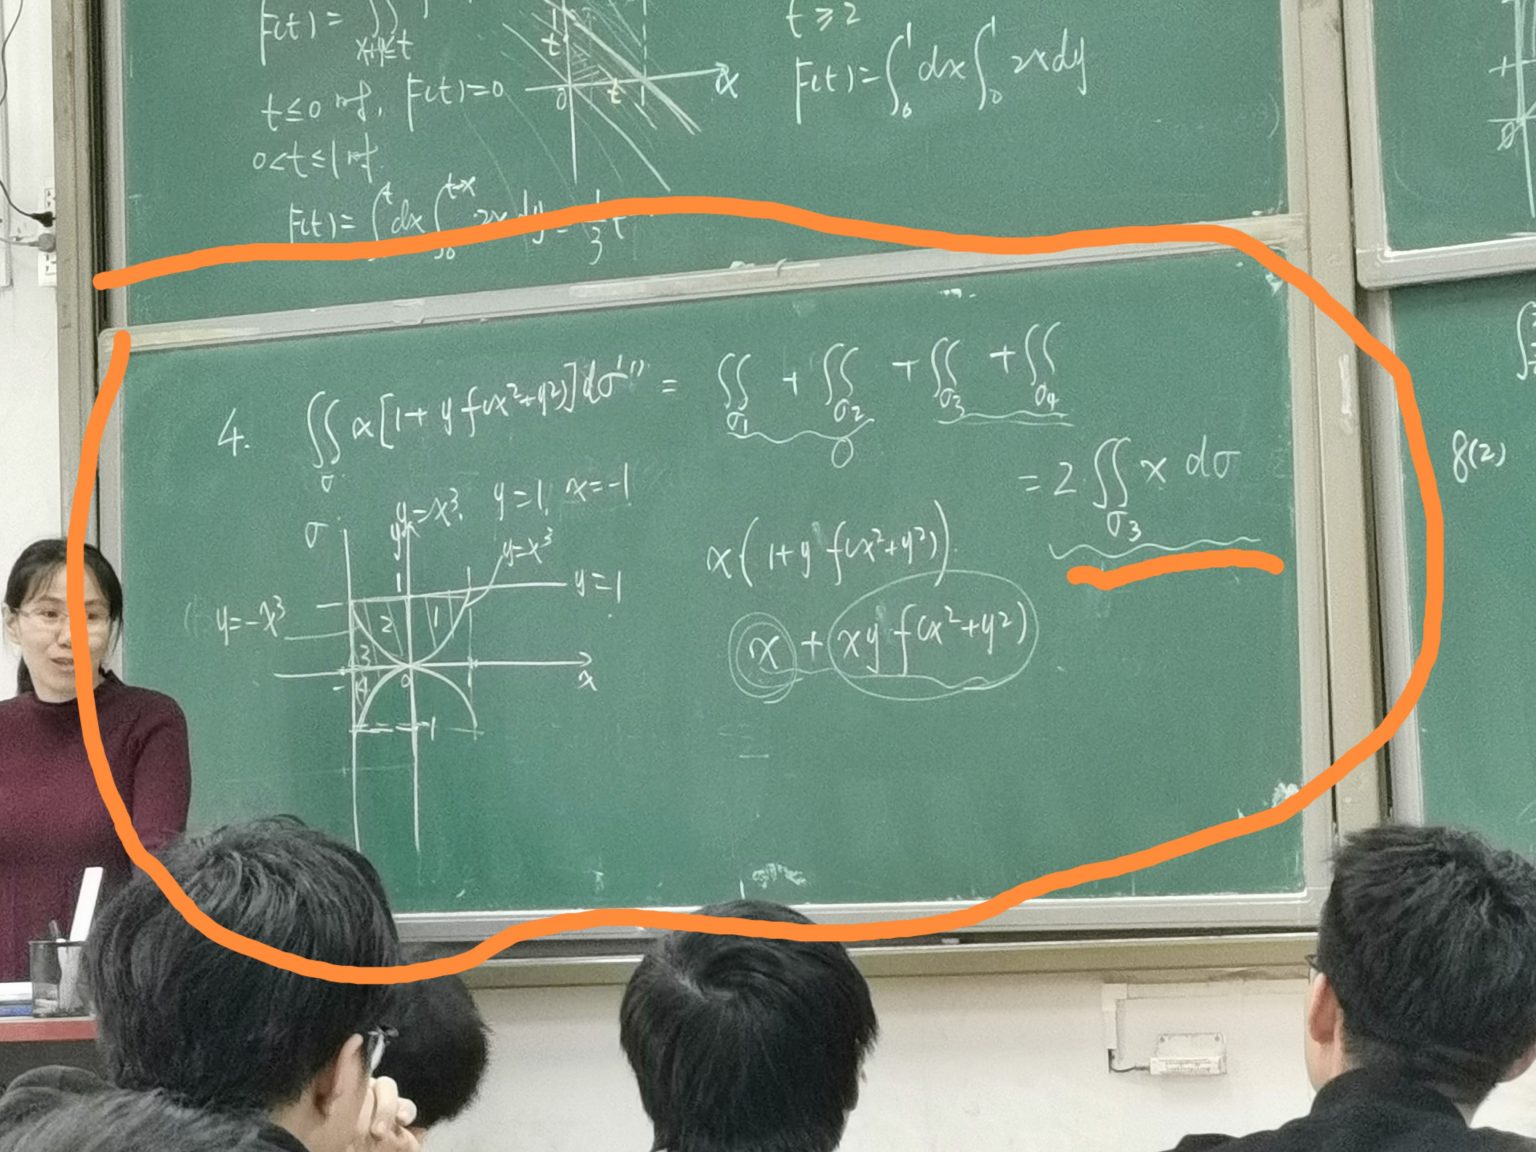 F(t)= ∬
x+y≤t
t≤0时, F(t)=0
0<t≤1时
F(t)= ∫₀ᵗ dx ∫₀ᵗ⁻ˣ 2x dy = 1/3 t
1
t
0
t
1
x
t≥2
F(t)=∫₀¹ dx ∫₀¹ 2x dy
4. ∬ x[1+ y f(x²+y²)]dσ = ∬ + ∬ + ∬ + ∬
σ
σ₁ σ₂ σ₃ σ₄
0
= 2 ∬ x dσ
σ₃
σ y=x³, y=1, x=-1
y
y=x³
1
y=1
y=-x³
2
1
3
4
-1
0
x
-1
x(1+y f(x²+y²))
x + xy f(x²+y²)
=
8(2)